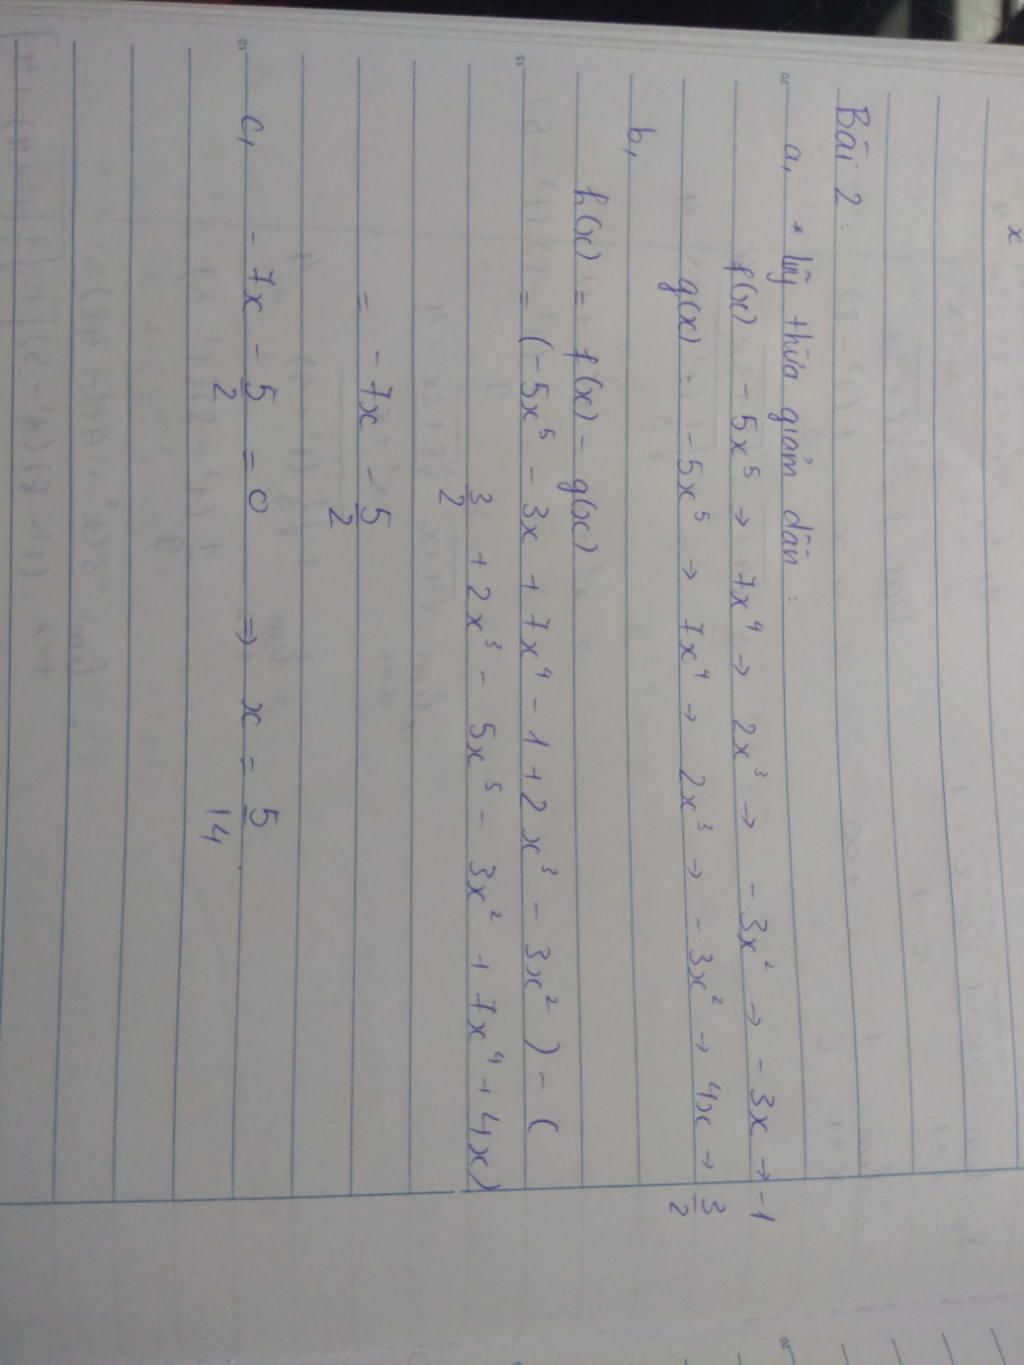 x
Bài 2:
a, * luỹ thừa giảm dần:
f(x) - 5x⁵ → 7x⁴ → 2x³ → - 3x² → - 3x → -1
g(x): - 5x⁵ → 7x⁴ → 2x³ → - 3x² → 4x → 3/2
b,
h(x) = f(x) - g(x)
= (- 5x⁵ - 3x + 7x⁴ - 1 + 2x³ - 3x²) - (
3/2 + 2x³ - 5x⁵ - 3x² + 7x⁴ + 4x)
= - 7x - 5/2
c, - 7x - 5/2 = 0 => x = 5/14